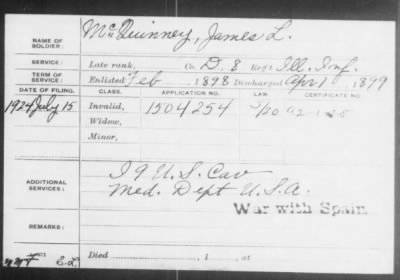 NAME OF SOLDIER: McQuinney, James L.
SERVICE: Late rank, Co. D. 8 Reg't Ill. Inf.
TERM OF SERVICE: Enlisted Feb 1898 Discharged Apr 1 1899
DATE OF FILING. CLASS. APPLICATION NO. LAW. CERTIFICATE NO.
1924 July 15 Invalid, 1504254
Widow,
Minor,
ADDITIONAL SERVICES: I 9 U.S. Cav
Med. Dept U.S.A.
War with Spain
REMARKS:
Died , 1 , at